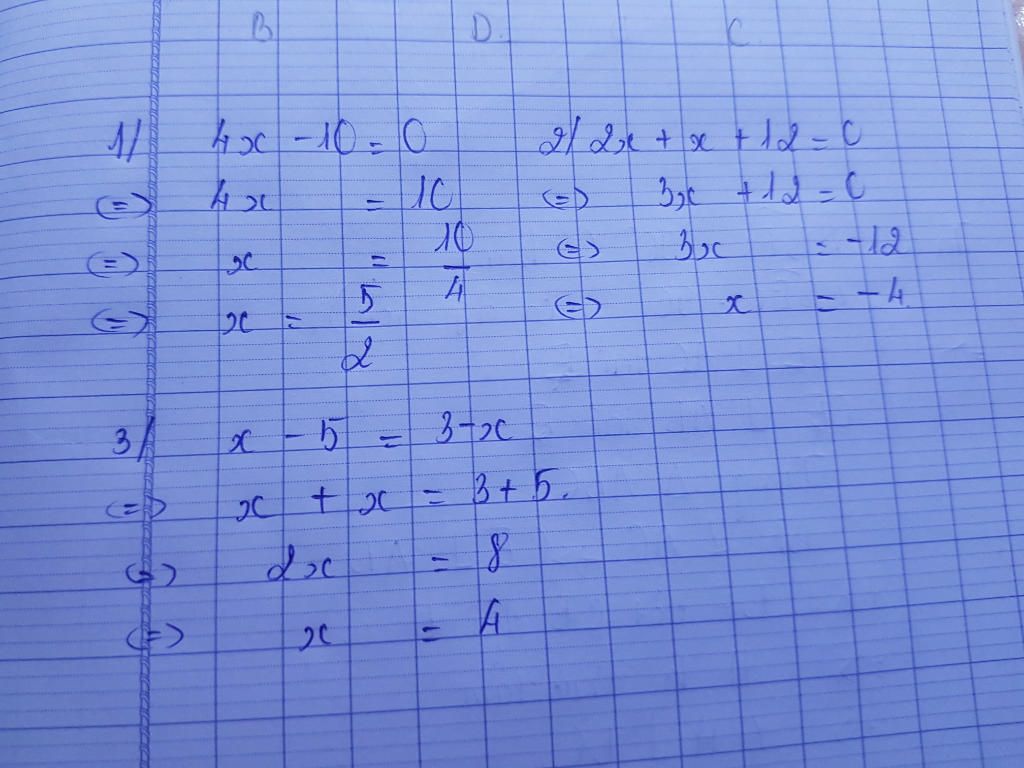 B D. C
1/ 4x - 10 = 0
(=) 4x = 10
(=) x = 10/4
(=) x = 5/2
2/ 2x + x + 12 = 0
(=) 3x + 12 = 0
(=) 3x = -12
(=) x = -4.
3/ x - 5 = 3-x
(=) x + x = 3 + 5.
(=) 2x = 8
(=) x = 4